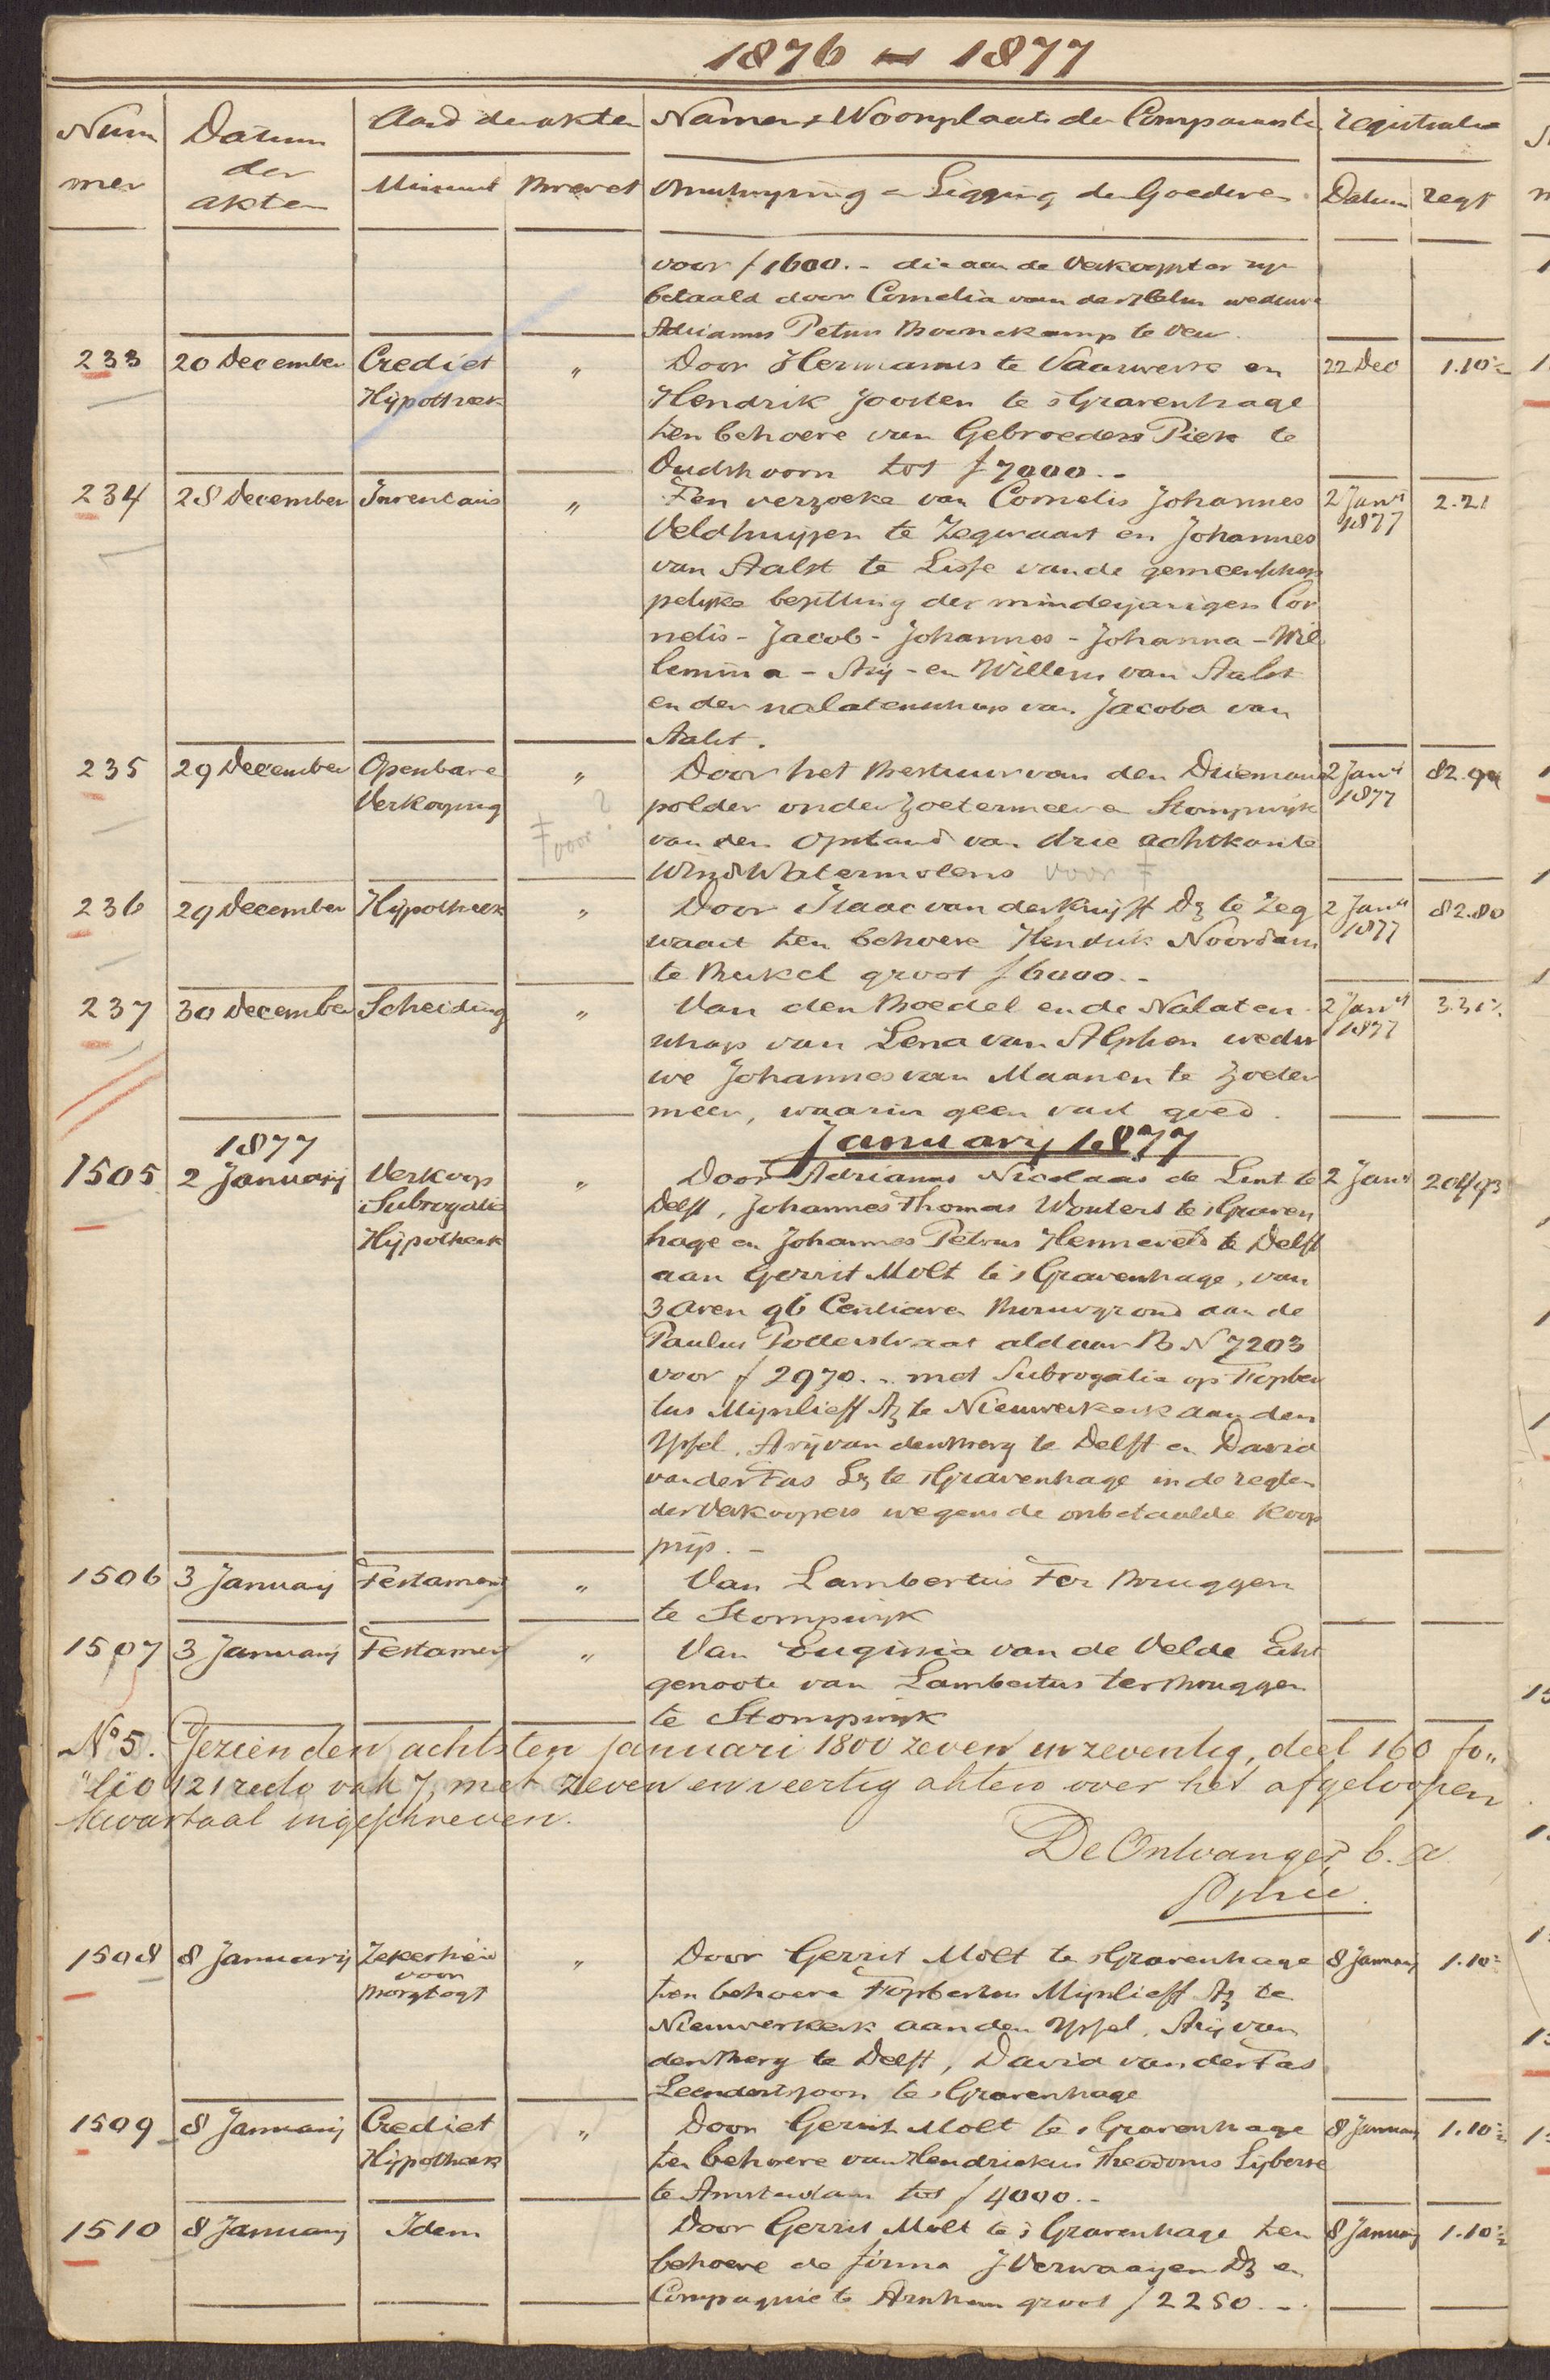 1876 – 1877
Num
mer
Datum
der
akten
Aard der akten
Minuut Brevet
Namen & Woonplaats der Comparanten
Omschrijving en Ligging der Goederen
registratie
Datum regt
voor f 1600.- die aan de Verkoopster zijn
betaald door Cornelia van der weduwe
Adrianus Petrus Boenekamp te Veur.
233 20 December Crediet „ Door Hermanus te Vaarwerk en 22 Dec 1.10½
Hypotheek Hendrik Joosten te 's Gravenhage
ten behoeve van Gebroeders Piek te
Oudshoorn tot f 7000.-
234 28 December Inventaris „ Ten verzoeke van Cornelis Johannes 2 Janij 2.21
1877
Veldhuijzen te Zegwaart en Johannes
van Aalst te Lisse van de gemeenschap
pelijke bezitting der minderjarigen Cor
nelis - Jacob - Johannes - Johanna - Wil
lemina - Arij - en Willem van Aalst
en der nalatenschap van Jacoba van
Aalst.
235 29 December Openbare „ Door het Bestuur van den Drieman 2 Janij 82.94
1877
Verkooping polder onder Zoetermeer en Stompwijk
Ŧ voor ?
van den Opstand van drie achtkante
Wind Watermolens voor Ŧ
236 29 December Hypotheek „ Door Isaac van der Kruijff Dz te Zeg 2 Janij 82.80
1877
waart ten behoeve Hendrik Noordam
te Berkel groot f 6000.-
237 30 December Scheiding „ Van den Boedel en de Nalaten 2 Janij 3.31½
1877
schap van Lena van Alphen weduw
we Johannes van Maanen te Zoeter
meer, waarin geen vast goed.
1877 Januarij 1877
1505 2 Januarij Verkoop „ Door Adrianus Nicolaas de Lint te 2 Janij 204.93
Subrogatie Delft, Johannes Thomas Wouters te 's Graven
Hypotheek hage en Johannes Petrus Henneveld te Delft
aan Gerrit Molt te 's Gravenhage, van
3 Aren 96 Centiaren Bouwgrond aan de
Paulus Potterstraat aldaar B N 7203
voor f 2970.- met Subrogatie op Fopber
tus Mijnlieff Az te Nieuwerkerk aan den
Yssel, Arij van den Berg te Delft en David
van der Tas Lz te 's Gravenhage in de regten
der Verkoopers wegens de onbetaalde koop
prijs.-
1506 3 Januarij Testament „ Van Lambertus Ter Bruggen
te Stompwijk
1507 3 Januarij Testament „ Van Euginia van de Velde Echt
genoote van Lambertus ter Bruggen
te Stompwijk
No 5. Gezien den achtsten januari 1800 zeven en zeventig, deel 160 fo„
„lio 121 recto vak 7, met zeven en veertig akten over het afgeloopen
kwartaal ingeschreven.
De Ontvanger, b. a.
1508 8 Januarij Zekerheid „ Door Gerrit Molt te 's Gravenhage 8 Januarij 1.10½
voor
Borgtogt ten behoeve Fopbertus Mijnlieff Az te
Nieuwerkerk aan den Yssel, Arij van
den Berg te Delft, David van der Tas
Leendertszoon te 's Gravenhage
1509 8 Januarij Crediet „ Door Gerrit Molt te 's Gravenhage 8 Januarij 1.10½
Hypotheek ten behoeve van Hendrickus Theodorus Sijberse
te Amsterdam tot f 4000.-
1510 8 Januarij Idem Door Gerrit Molt te 's Gravenhage ten 8 Januarij 1.10½
behoeve de firma J Verwaayen Dz en
Compagnie te Arnhem groot f 2250.-